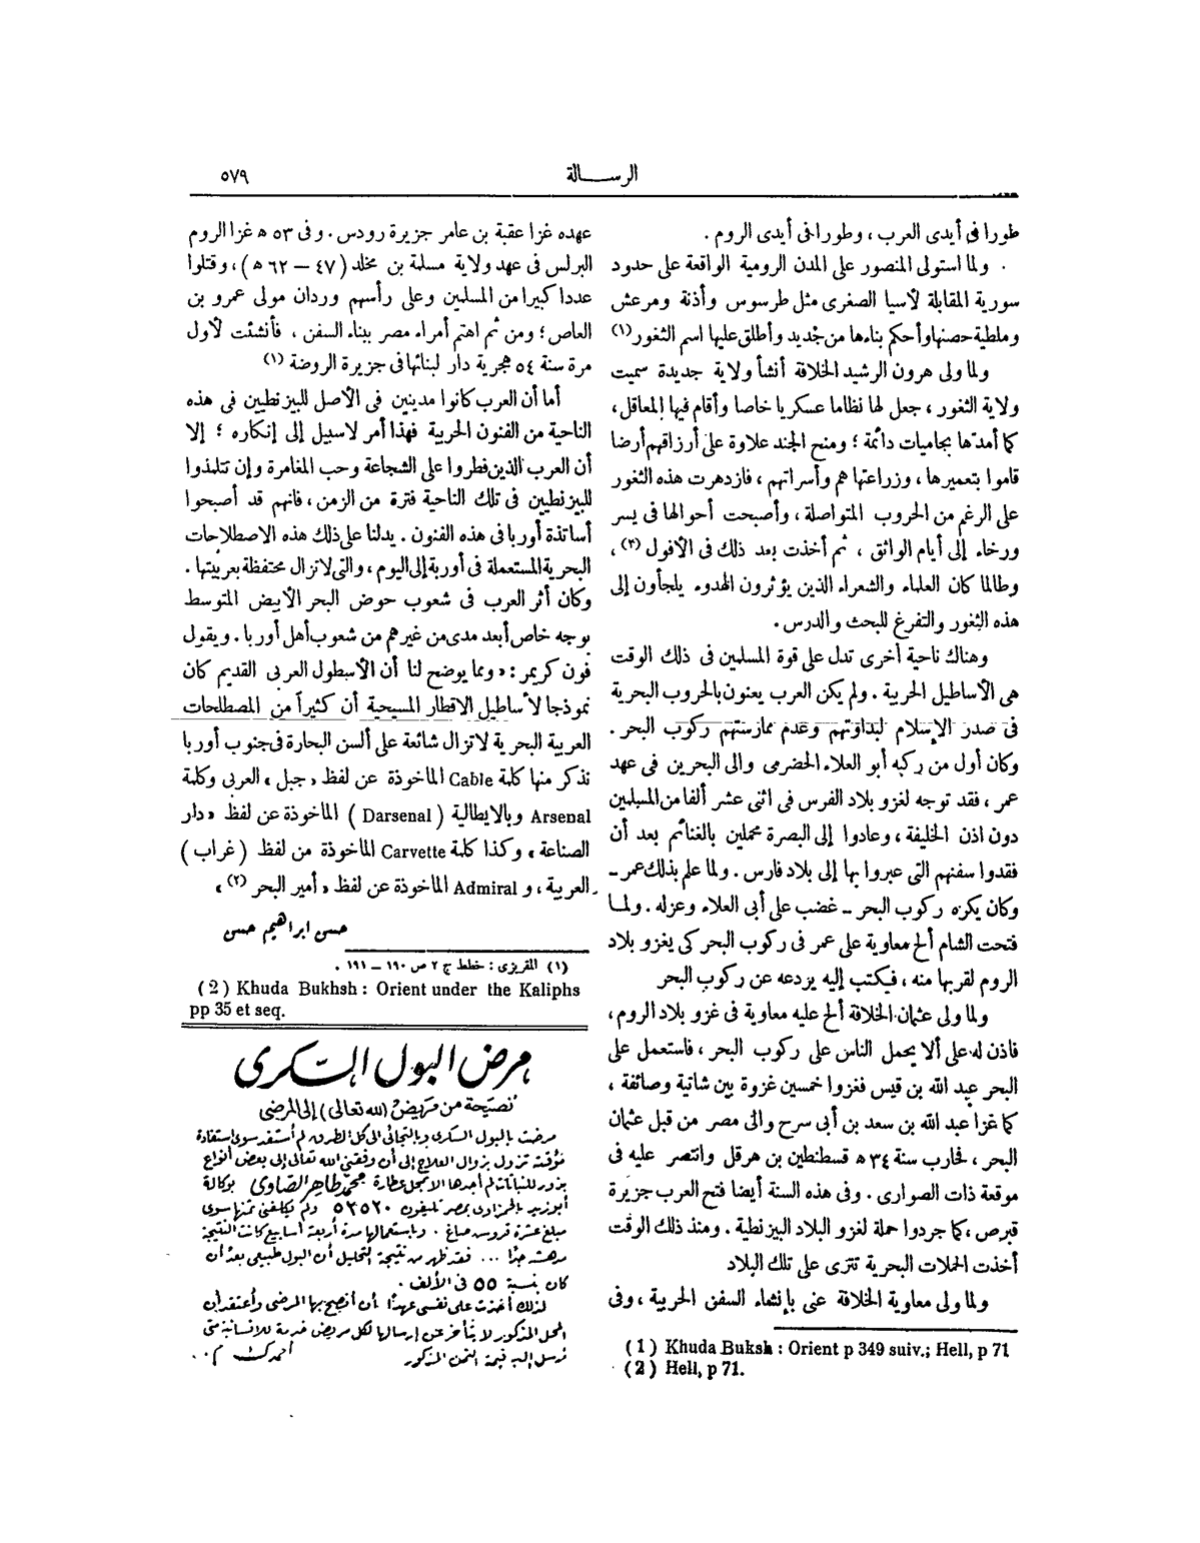 الرسالة
٥٧٩
طورا فى أيدى العرب ، وطورا فى أيدى الروم .
ولما استولى المنصور على المدن الرومية الواقعة على حدود
سورية المقابلة لأسيا الصغرى مثل طرسوس وأذنة ومرعش
وملطية حصنها وأحكم بناءها من جديد وأطلق عليها اسم الثغور (١)
ولما ولى هرون الرشيد الخلافة أنشأ ولاية جديدة سميت
ولاية الثغور ، جعل لها نظاما عسكريا خاصا وأقام فيها المعاقل ،
كما أمدتها بحاميات دائمة ؛ ومنح الجند علاوة على أرزاقهم أرضا
قاموا بتعميرها ، وزراعتها هم وأسراتهم ، فازدهرت هذه الثغور
على الرغم من الحروب المتواصلة ، وأصبحت أحوالها فى يسر
ورخاء إلى أيام الواثق ، ثم أخذت بعد ذلك فى الأفول (٢) ،
وطالما كان العلماء والشعراء الذين يؤثرون الهدوء يلجأون إلى
هذه الثغور والتفرغ للبحث والدرس .
وهناك ناحية أخرى تدل على قوة المسلمين فى ذلك الوقت
هى الأساطيل الحربية . ولم يكن العرب يعنون بالحروب البحرية
فى صدر الإسلام لبداوتهم وعدم ممارستهم ركوب البحر .
وكان أول من ركبه أبو العلاء الحضرمى والى البحرين فى عهد
عمر ، فقد توجه لغزو بلاد الفرس فى اثنى عشر ألفا من المسلمين
دون اذن الخليفة ، وعادوا إلى البصرة محملين بالغنائم بعد أن
فقدوا سفنهم التى عبروا بها إلى بلاد فارس . ولما علم بذلك عمر ــ
وكان يكره ركوب البحر ــ غضب على أبى العلاء وعزله . ولما
فتحت الشام ألح معاوية على عمر فى ركوب البحر كى يغزو بلاد
الروم لقربها منه ، فيكتب إليه يردعه عن ركوب البحر
ولما ولى عثمان الخلافة ألح عليه معاوية فى غزو بلاد الروم ،
فاذن له على ألا يحمل الناس على ركوب البحر ، فاستعمل على
البحر عبد الله بن قيس فغزوا خمسين غزوة بين شاتية وصائفة ،
كما غزا عبد الله بن سعد بن أبى سرح والى مصر من قبل عثمان
البحر ، فحارب سنة ٣٤ ه قسطنطين بن هرقل وانتصر عليه فى
موقعة ذات الصوارى . وفى هذه السنة أيضا فتح العرب جزيرة
قبرص ، كما جردوا حملة لغزو البلاد البيزنطية . ومنذ ذلك الوقت
أخذت الحملات البحرية تترى على تلك البلاد
ولما ولى معاوية الخلافة عنى بإنشاء السفن الحربية ، وفى
(1) Khuda Buksh : Orient p 349 suiv.; Hell, p 71
(2) Hell, p 71.
عهده غزا عقبة بن عامر جزيرة رودس . وفى ٥٣ ه غزا الروم
البرلس فى عهد ولاية مسلمة بن مخلد (٤٧ – ٦٢ ه) ، وقتلوا
عددا كبيرا من المسلمين وعلى رأسهم وردان مولى عمرو بن
العاص ؛ ومن ثم اهتم أمراء مصر ببناء السفن ، فأنشئت لأول
مرة سنة ٥٤ هجرية دار لبنائها فى جزيرة الروضة (١)
أما أن العرب كانوا مدينين فى الأصل للبيزنطيين فى هذه
الناحية من الفنون الحربية فهذا أمر لاسبيل إلى إنكاره ؛ إلا
أن العرب الذين فطروا على الشجاعة وحب المغامرة وإن تتلمذوا
للبيزنطيين فى تلك الناحية فترة من الزمن ، فانهم قد أصبحوا
أساتذة أوربا فى هذه الفنون . يدلنا على ذلك هذه الاصطلاحات
البحرية المستعملة فى أوربة إلى اليوم ، والتى لاتزال محتفظة بعربيتها .
وكان أثر العرب فى شعوب حوض البحر الأبيض المتوسط
بوجه خاص أبعد مدى من غيرهم من شعوب أهل أوربا . ويقول
فون كريمر : « ومما يوضح لنا أن الأسطول العربى القديم كان
نموذجا لأساطيل الاقطار المسيحية أن كثيراً من المصطلحات
العربية البحرية لاتزال شائعة على ألسن البحارة فى جنوب أوربا
نذكر منها كلمة Cable الماخوذة عن لفظ « حبل » العربى وكلمة
Arsenal وبالايطالية ( Darsenal ) الماخوذة عن لفظ « دار
الصناعة » وكذا كلمة Carvette الماخوذة من لفظ ( غراب )
العربية ، و Admiral الماخوذة عن لفظ « أمير البحر (٢) »
حسن ابراهيم حسن
(١) المقريزى : خطط ج ٢ ص ١٩٠ – ١٩١ .
(2) Khuda Bukhsh : Orient under the Kaliphs
pp 35 et seq.
مرض البول السكرى
نصيحة من مريض (لله تعالى) إلى المرضى
مرضت بالبول السكرى وبالتجائى الى كل الطرق لم أستفد سوى استفادة
مؤقتة تزول بزوال العلاج إلى أن وفقنى الله تعالى إلى بعض أنواع
بزور للنباتات لم أجدها الا بمحل عطارة محمد طاهر الصاوى بوكالة
أبوزيد بالحمزاوى بمصر تليفون ٥٣٥٢٠ ولم يكلفنى ثمنها سوى
مبلغ عشرة قروش صاغ . وباستعمالها مدة أربعة أسابيع كانت النتيجة
مدهشة جدًا ... فقد ظهر من نتيجة التحليل أن البول طبيعى بعد أن
كان بنسبة ٥٥ فى الألف .
لذلك أخذت على نفسى عهدًا أن أنصح بها المرضى وأعتقد أن
المحل المذكور لا يتأخر عن إرسالها لكل مريض خدمة للانسانية متى
ترسل إليه قيمة الثمن المذكور